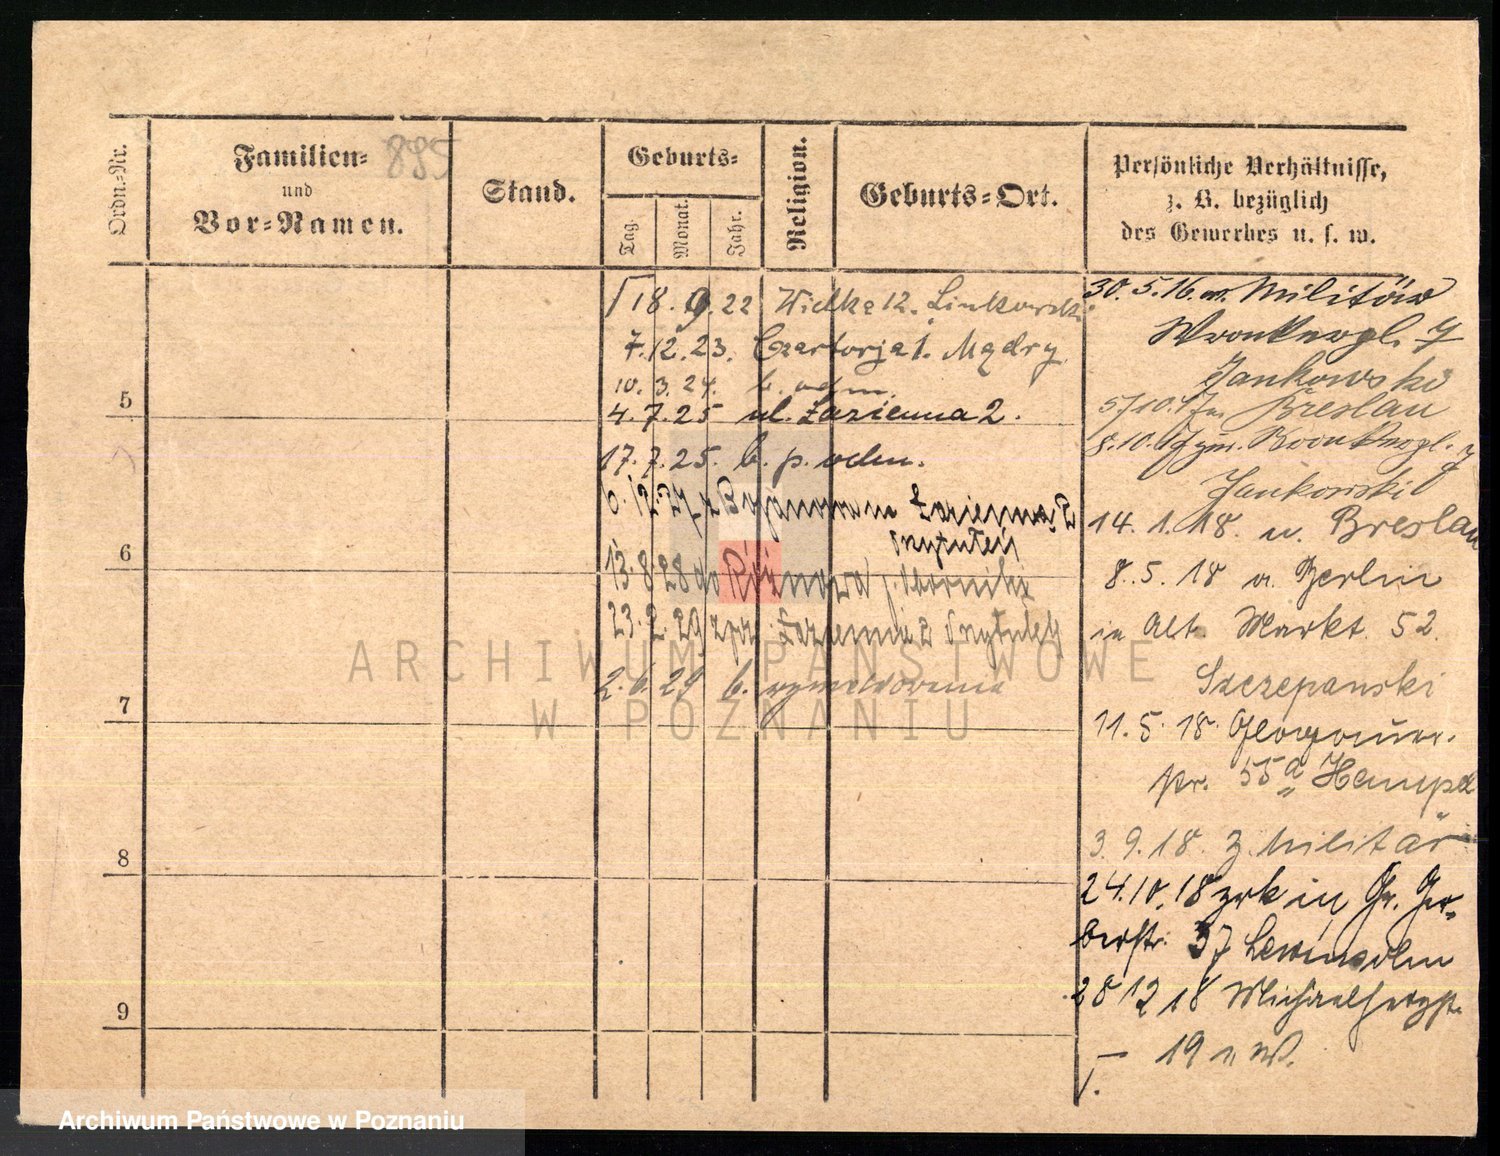 Ordn.-Nr.
Familien-
und
Vor-Namen.
895
Stand.
Geburts-
Tag.
Monat.
Jahr.
Religion.
Geburts-Ort.
Persönliche Verhältnisse,
z. B. bezüglich
des Gewerbes u. s. w.
18. 9. 22 Wielka 12. Linkowski
7. 12. 23. Czartorja 1. Mądry
10. 3. 24. b. odm.
5
4. 7. 25 ul. Łazienna 2.
17. 7. 25. b. p. odm.
6. 12. 27 z Łazienna 2
6
13. 8. 28 do Różnowa
23. 2. 29 Łazienna 2
2. 6. 29 b. wymeldowania
7
8
9
30. 5. 16. Militär
Jankowski
5/10. 17 Breslau
8. 10. 17
Jankowski
14. 1. 18. n. Breslau
8. 5. 18 a. Berlin
in Alt. Markt 52.
Szczepanski
11. 5. 18
55a Hampel
3. 9. 18. z. Militär
24. 10. 18 zrk in Gr. Ger-
berstr. 37 Lewinsohn
28 12 18
19 n W.
ARCHIWUM PAŃSTWOWE
W POZNANIU
Archiwum Państwowe w Poznaniu